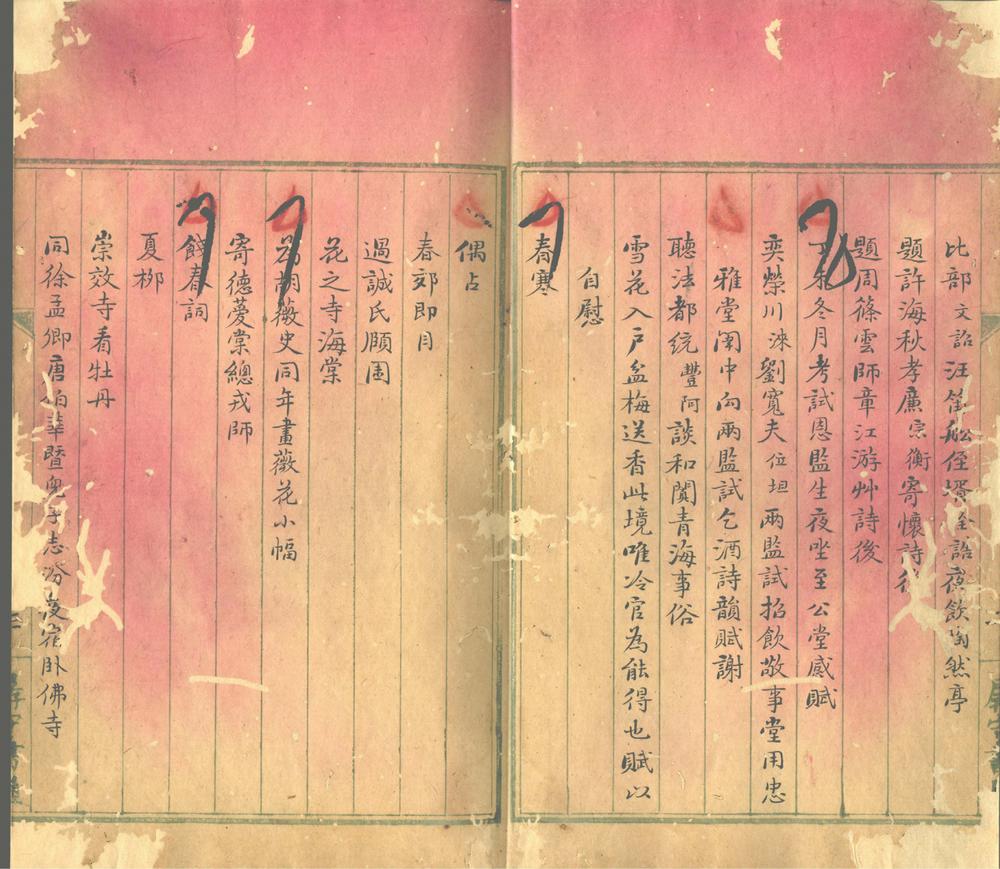 比部文詔汪笛舩侄壻全誥夜飲陶然亭
題許海秋孝廉宗衡寄懷詩後
題周篠雲師章江游艸詩後
冬月考試恩監生夜坐至公堂感賦
奕榮川涞劉寬夫位坦兩監試招飲敬事堂用忠
雅堂闈中向兩監試乞酒詩韻賦謝
聽法都統豐阿談和闐青海事俗
雪花入戶盆梅送香此境唯冷官為能得也賦以
自慰
春寒
偶占
春郊即目
過誠氏廢園
花之寺海棠
為胡薇史同年畫薇花小幅
寄德菱棠總戎師
餞春詞
夏栁
崇效寺看牡丹
同徐孟卿唐柏華暨兒子志汾夜宿卧佛寺